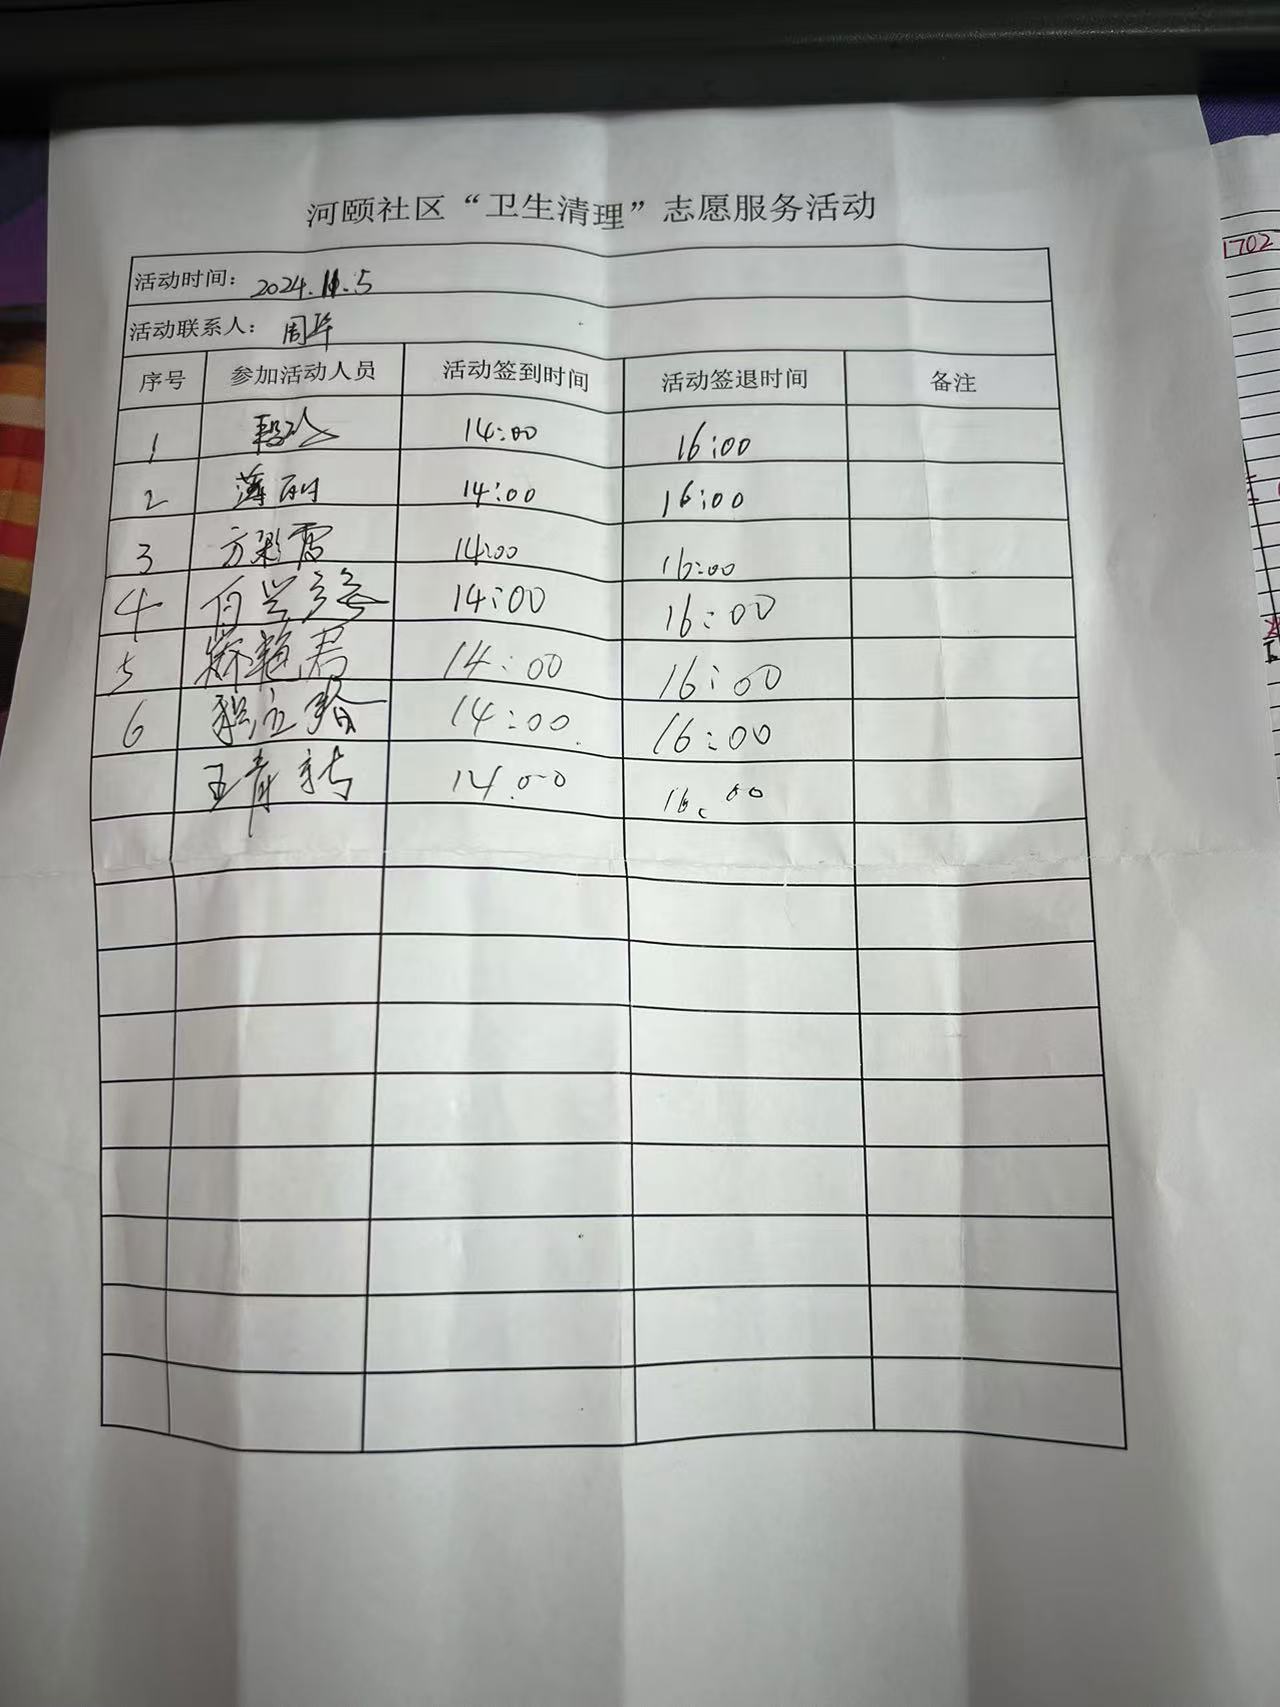 河颐社区“卫生清理”志愿服务活动
活动时间：2024.11.5
活动联系人：周华
序号 参加活动人员 活动签到时间 活动签退时间 备注
1 14:00 16:00
2 薄丽 14:00 16:00
3 方彩霞 14:00 16:00
4 14:00 16:00
5 乔艳君 14:00 16:00
6 14:00 16:00
王青 14.00 16:00
1702